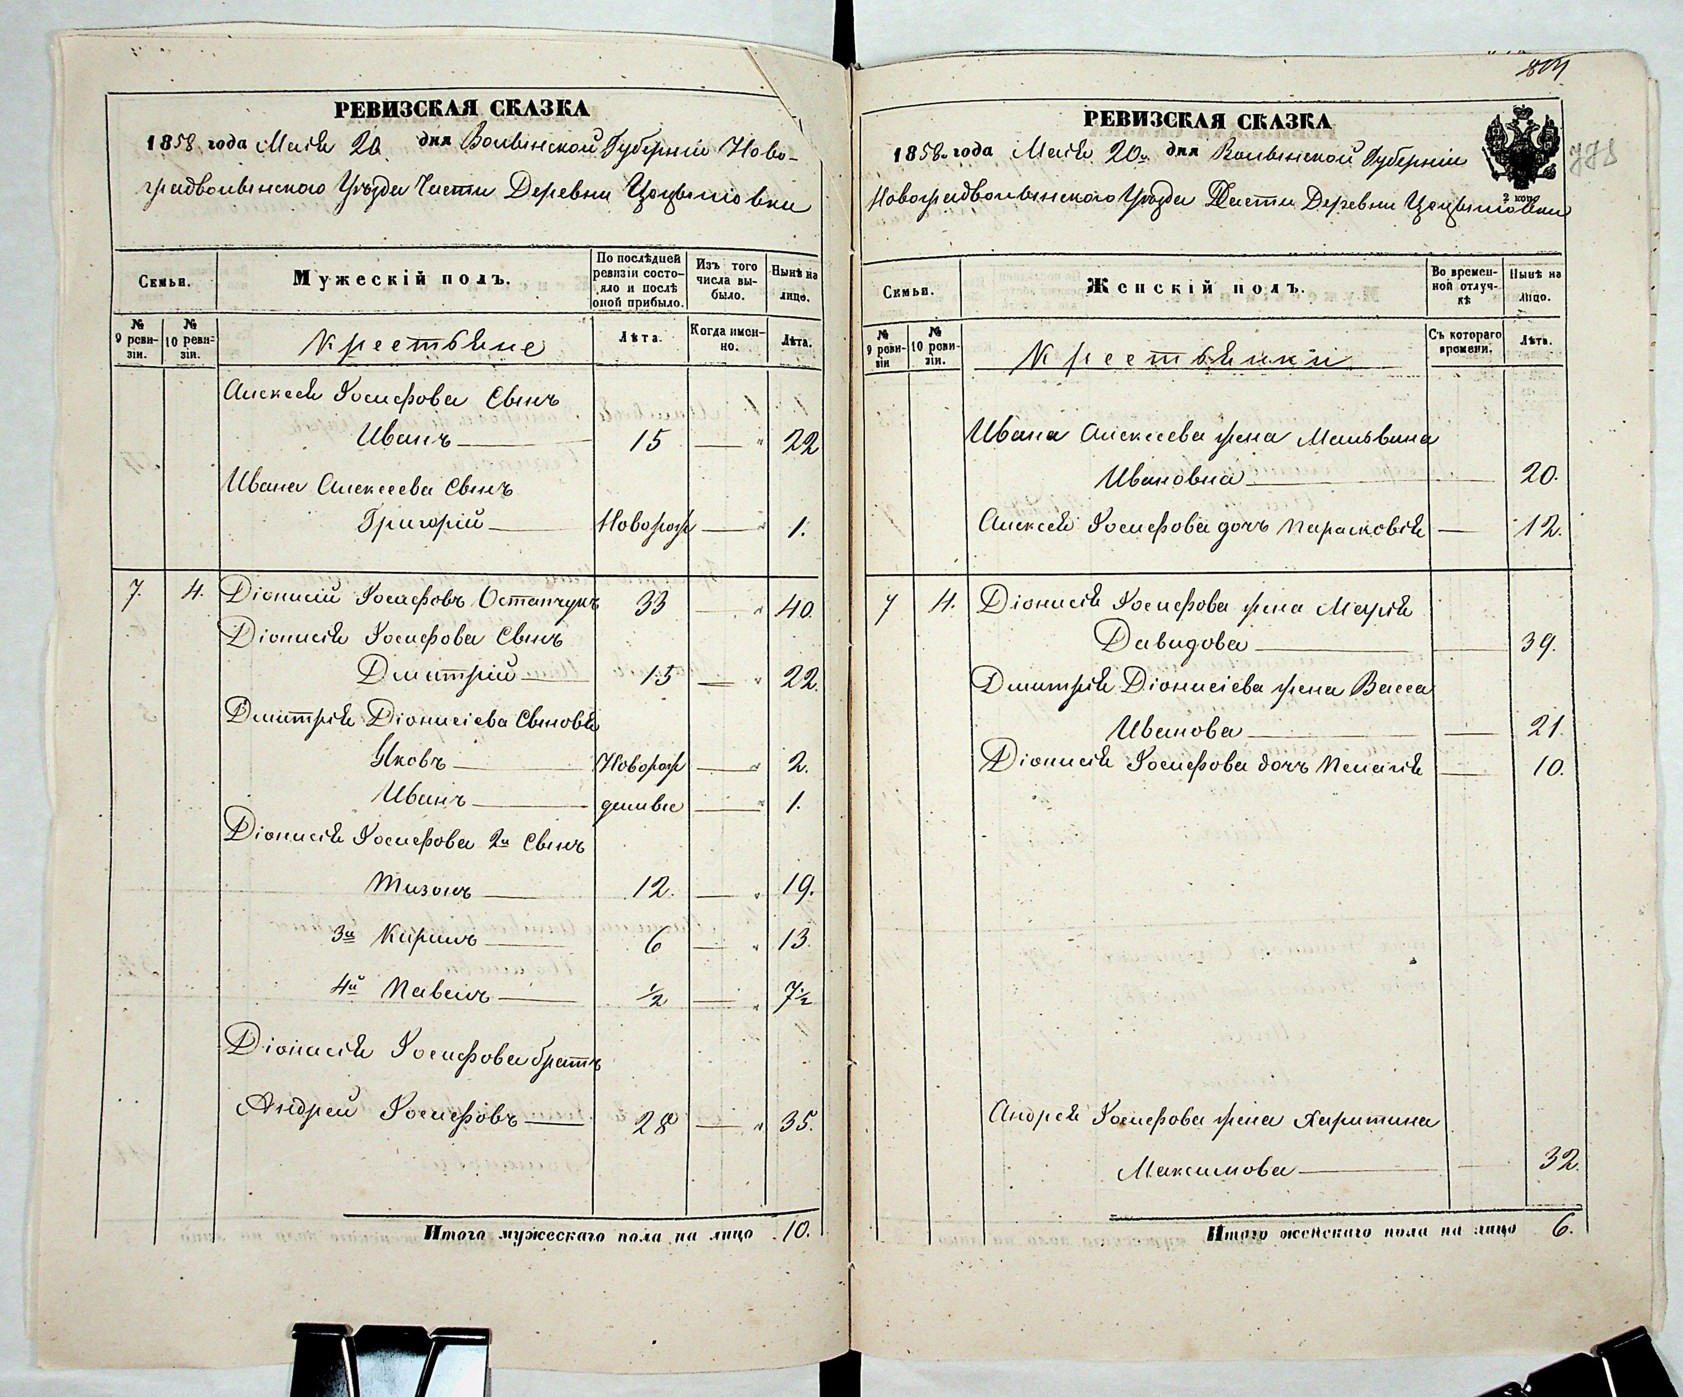 РЕВИЗСКАЯ СКАЗКА
1858 года Мая 20 дня Волынской Губерніи Ново-
градволынскаго Уѣзда Части Деревни
Семьи.
Мужескій полъ.
По послѣдней ревизіи состояло и послѣ оной прибыло.
Изъ того числа выбыло.
Нынѣ на лицо.
№ 9 ревизіи.
№ 10 ревизіи.
Крестьяне
Лѣта.
Когда именно.
Лѣта.
Алексея Іосифова сынъ
Иванъ 15 " 22
Ивана Алексеева сынъ
Григорій Новорож " 1.
7. 4. Діонисій Іосифовъ Остапчукъ 33 " 40.
Діонисія Іосифова сынъ
Дмитрій 15 " 22.
Дмитрія Діонисіева сыновья
Яковъ Новорож " 2.
Иванъ денные " 1.
Діонисія Іосифова 2й сынъ
Тизонъ 12. " 19.
3й Кирилъ 6 " 13
4й Павелъ ½ " 7½
Діонисія Іосифова братъ
Андрей Іосифовъ 28 " 35.
Итого мужескаго пола на лицо 10.
804
778
РЕВИЗСКАЯ СКАЗКА
1858 года Мая 20 дня Волынской Губерніи
Новоградволынскаго Уѣзда Части Деревни
2 коп.
Семьи.
Женскій полъ.
Во временной отлучкѣ
Нынѣ на лицо.
№ 9 ревизіи
№ 10 ревизіи.
Крестьянки
Съ котораго времени.
Лѣта.
Ивана Алексеева жена Мальвина
Ивановна 20.
Алексея Іосифова дочь Парасковія 12.
7 4. Діонисія Іосифова жена Марія
Давидова 39.
Дмитрія Діонисіева жена Васса
Иванова 21.
Діонисія Іосифова дочь Пелагія 10.
Андрея Іосифова жена Харитина
Максимова 32.
Итого женскаго пола на лицо 6.